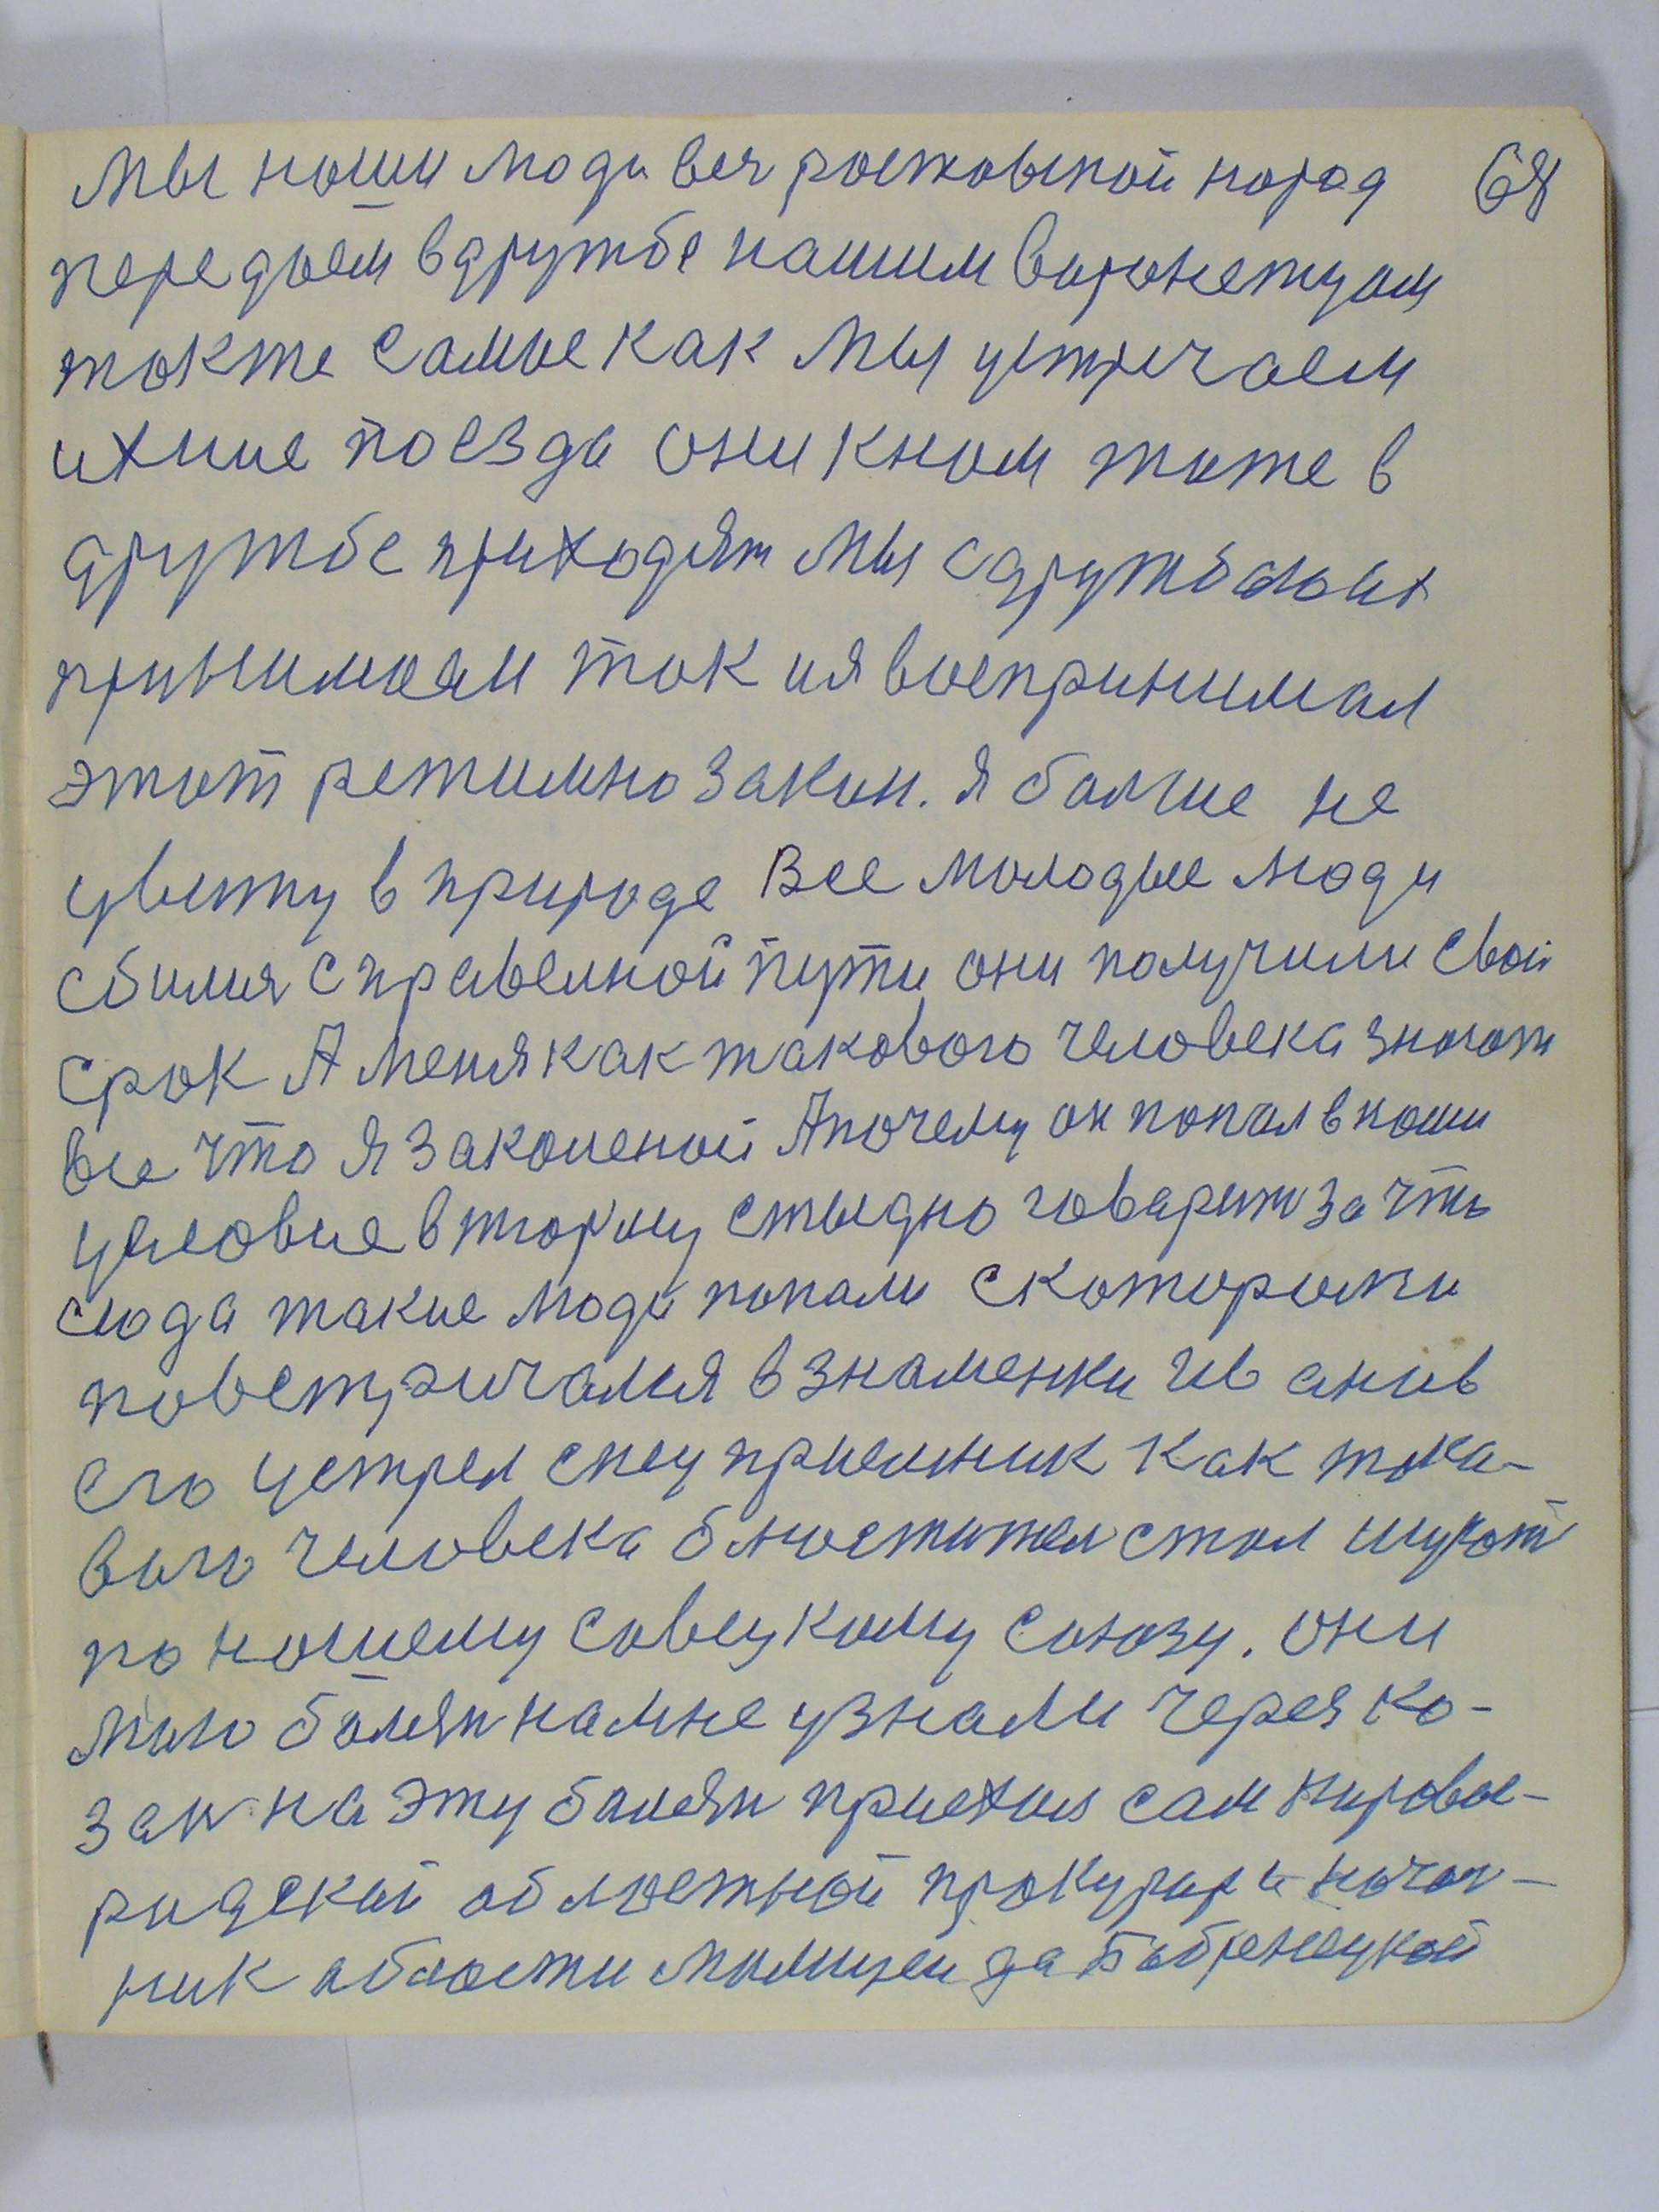 Мы наши люди вся ростовской народ 68
передаем в дружбе нашим воронежцам
также самые как мы устричаем
ихние поезда они к нам тоже в
дружбе приходят мы с дружбою их
принимаем так и я воспринимал
этот режимно закон. Я больше не
увижу в природе Все молодые люди
сбилися с правелной пути они получили свой
срок А меня как такового человека знают
все что я законеной А почему он попал в наши
условие в тюрьму стыдно говарить за что
сюда такие люди попали с которыми
повстричался в знаменки Иванив
его устрел спец приемник как тока-
вого человека блюститея стал шукат
по нашему Савецкому союзу. они
мою болезн на мне узнали через ко-
зан на эту болезн приехал сам Кирове-
радский областной прокурор и начал-
ник области милицеи да Бобренецкой